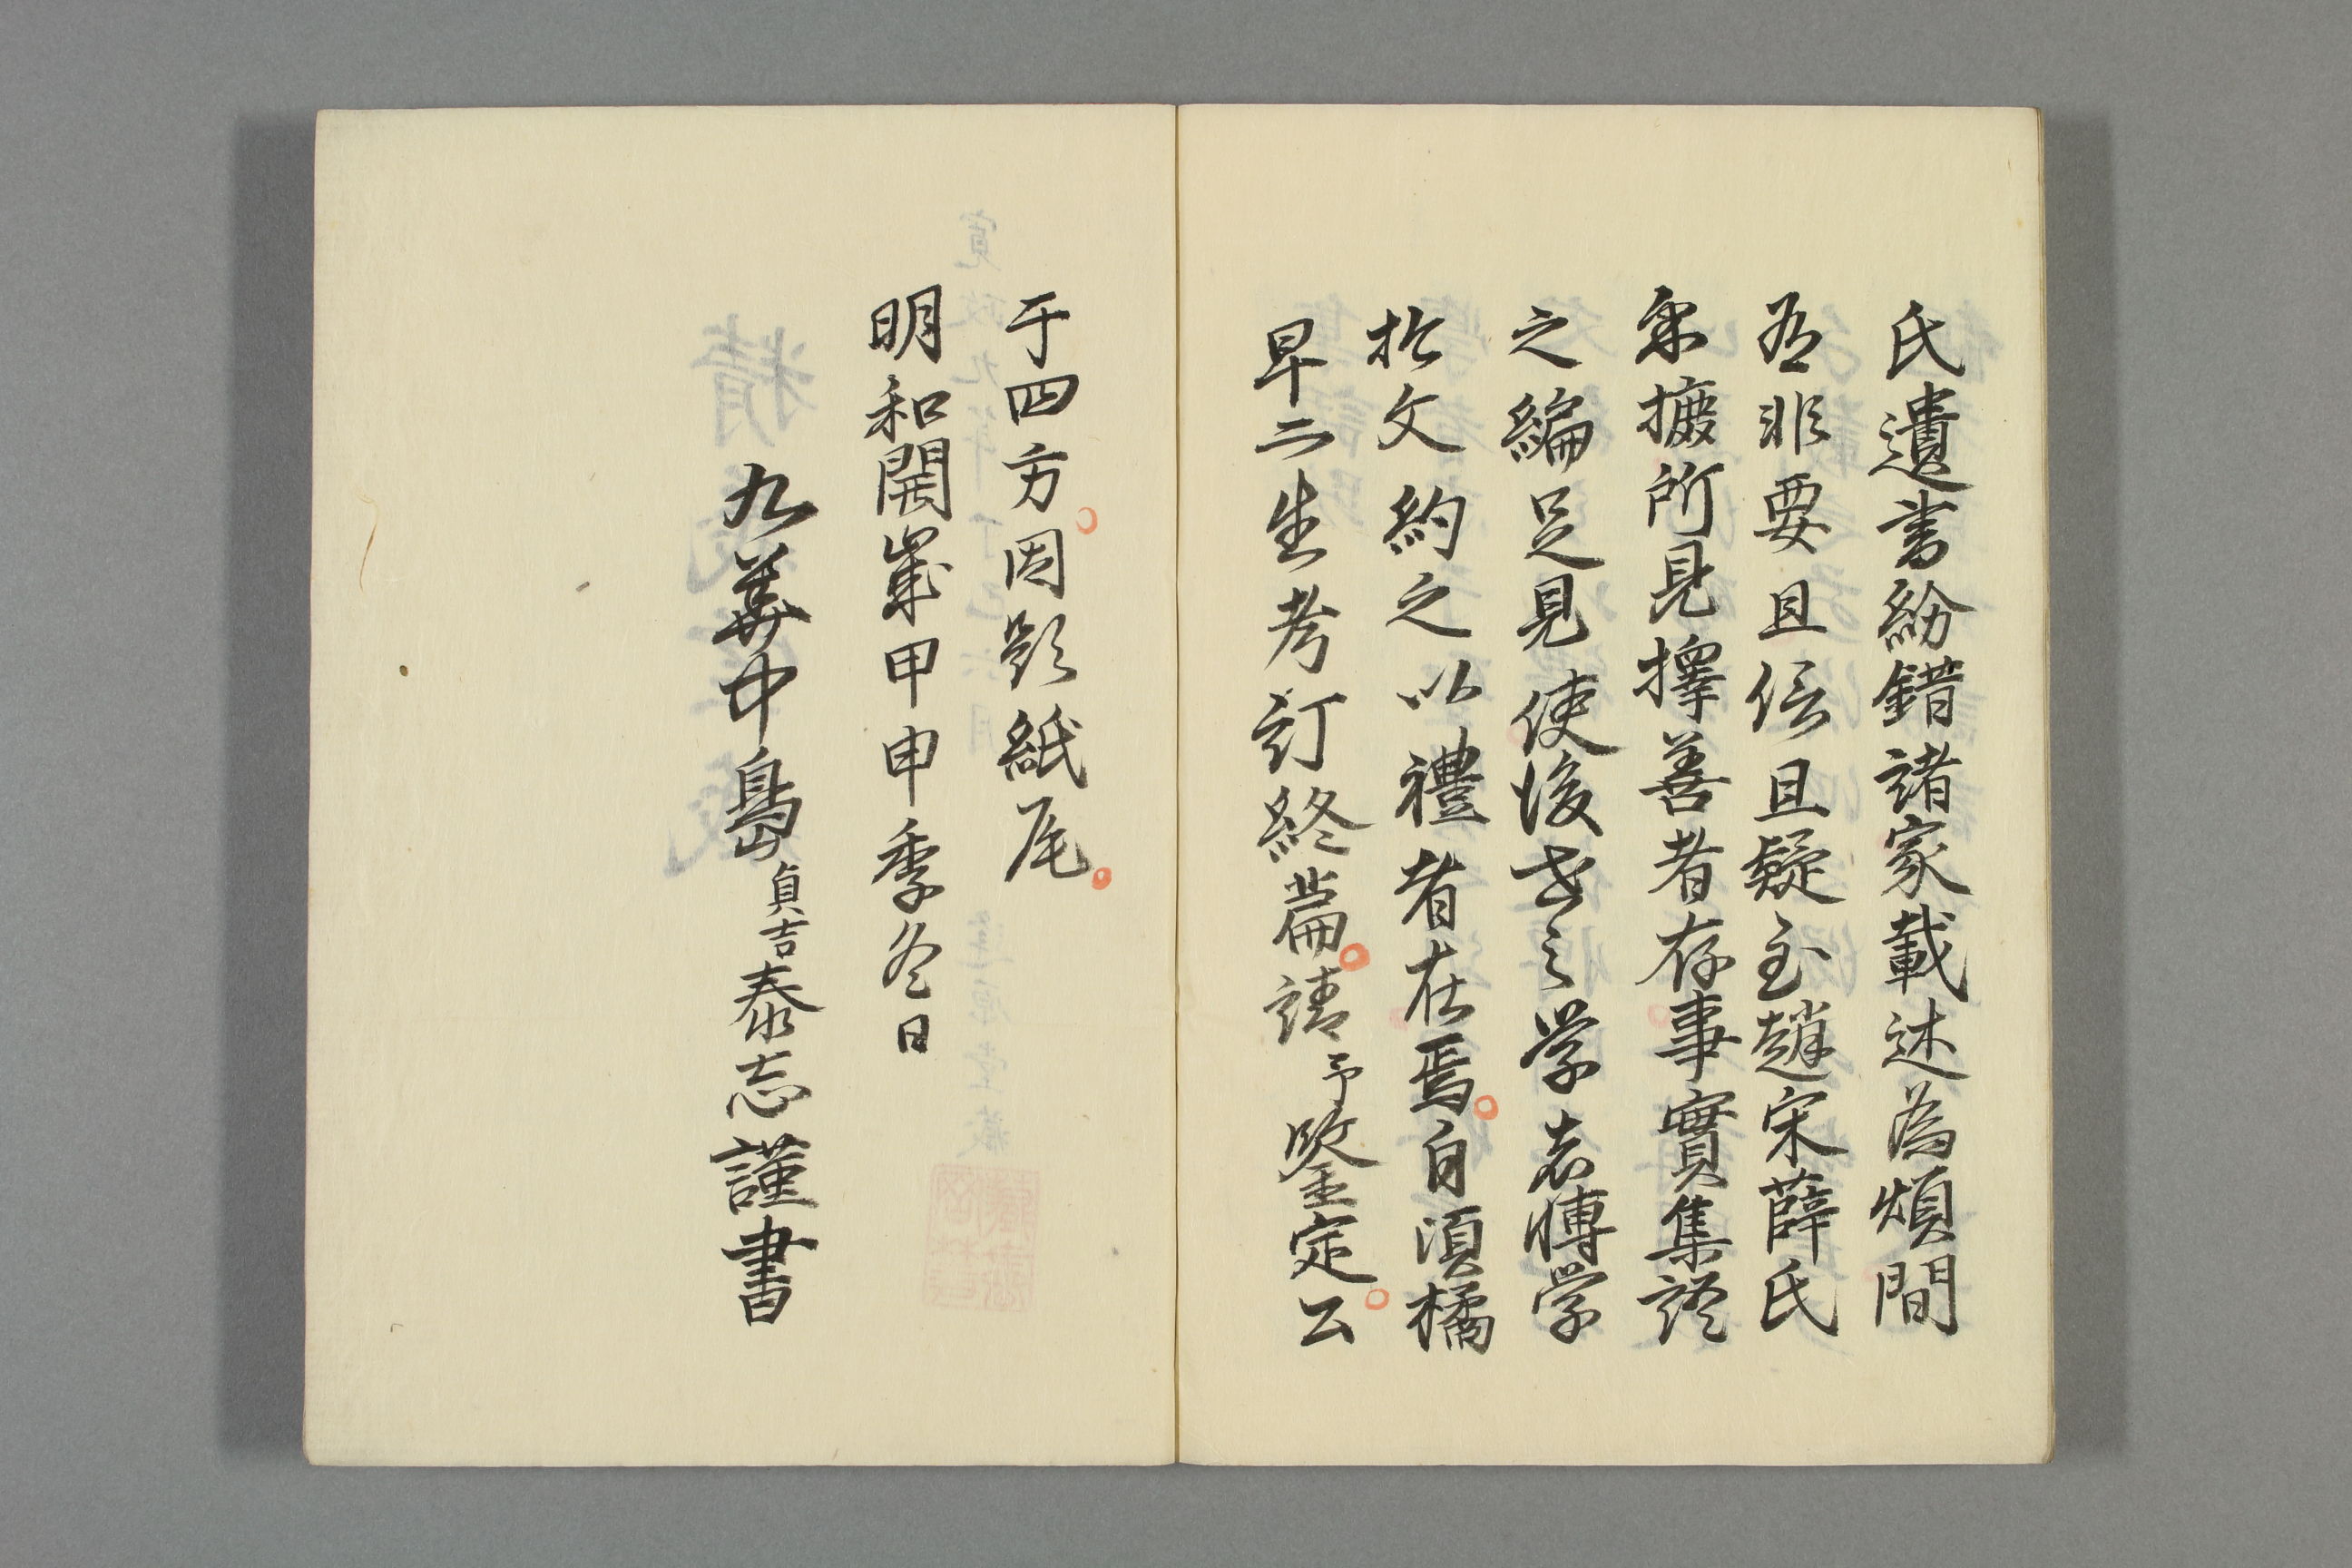 氏遺書紛錯諸家載述為煩間
有非要且信且疑至趙宋薛氏
采摭所見擇善者存事實集證
之編足見使後世之学者博学
於文約之以禮者在焉自須橘
早二生考訂終篇請予鑒定公
于四方因題紙尾
明和開嵗甲申季冬日
九華中嶌貞吉泰志謹書